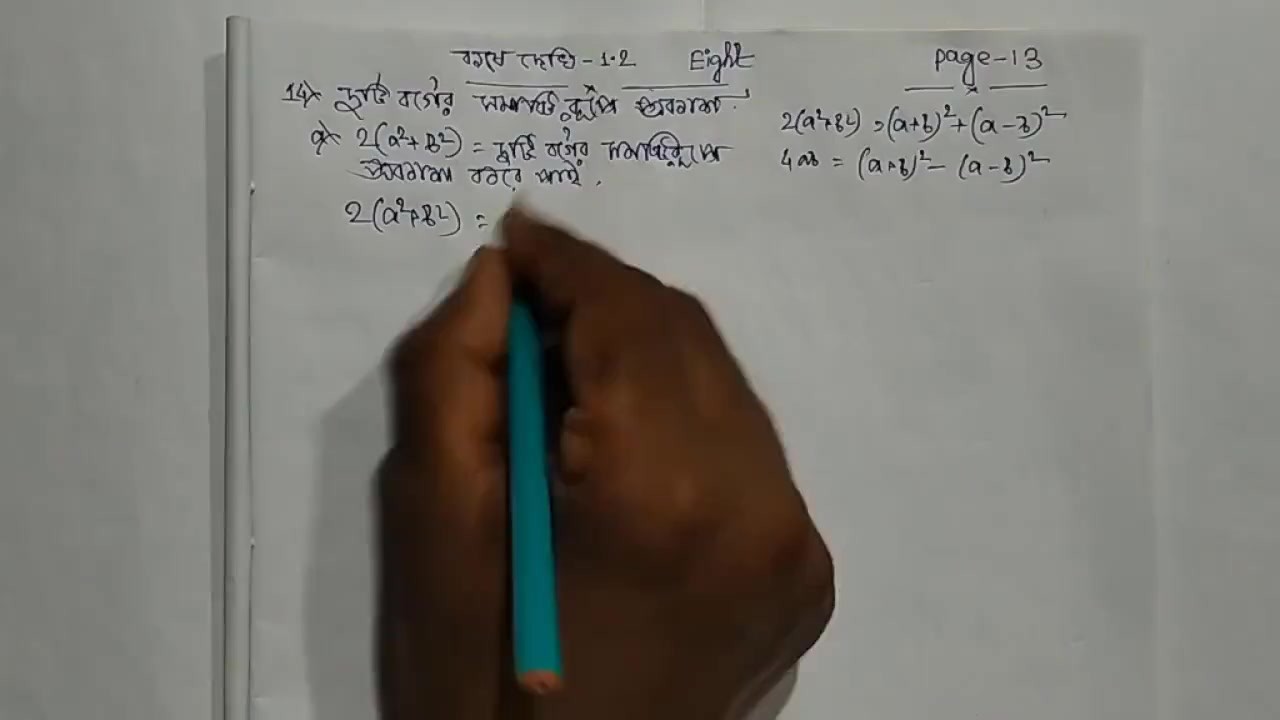 কষে দেখি - 1.2 Eight Page-13
14) দুটি বর্গের সমষ্টি রূপে প্রকাশ
a) 2(a²+b²) = দুটি বর্গের সমষ্টিরূপে
প্রকাশ করে পাই,
2(a²+b²) =
2(a²+b²) = (a+b)²+(a-b)²
4ab = (a+b)² - (a-b)²